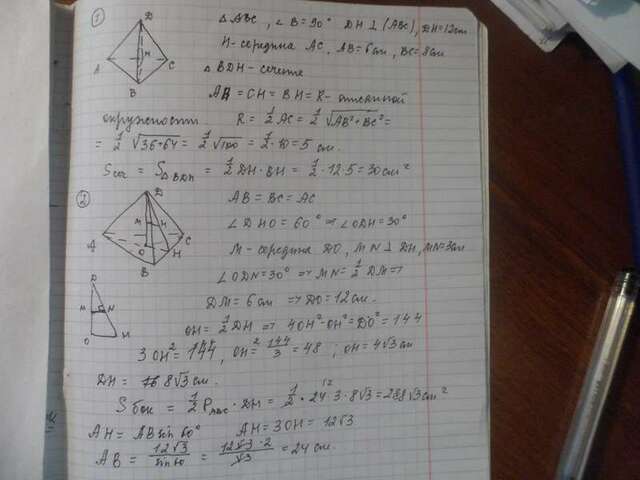 1
D
M
A
C
B
△ ABC, ∠B=90° DH ⊥ (ABC), DH=12cm
H-середина AC. AB=6см, BC=8см
△ BDH-сечение
AH=CH=BH=R-описанной
окружност. R=1/2 AC=1/2 √AB²+BC²=
=1/2 √36+64=1/2 √100=1/2·10=5 см.
Sсеч = S△BDH = 1/2 DH·BH = 1/2·12·5=30см²
2
D
M
N
A
C
O
H
B
AB=BC=AC
∠DHO=60° ⇒ ∠ODH=30°
M-середина DO, MN ⊥ DH, MN=3см
∠ODN=30° ⇒ MN=1/2 DM ⇒
DM=6см ⇒ DO=12см.
D
M
N
O
H
OH=1/2 DH ⇒ 4OH²-OH²=DO²=144
3OH²=144, OH²=144/3=48; OH=4√3см
DH= 8√3см.
Sбок = 1/2 Pосн·DH=1/2·24·3·8√3=288√3см²
12
AH=ABsin60° AH=3OH=12√3
AB=12√3/sin60=12√3·2/√3=24см.